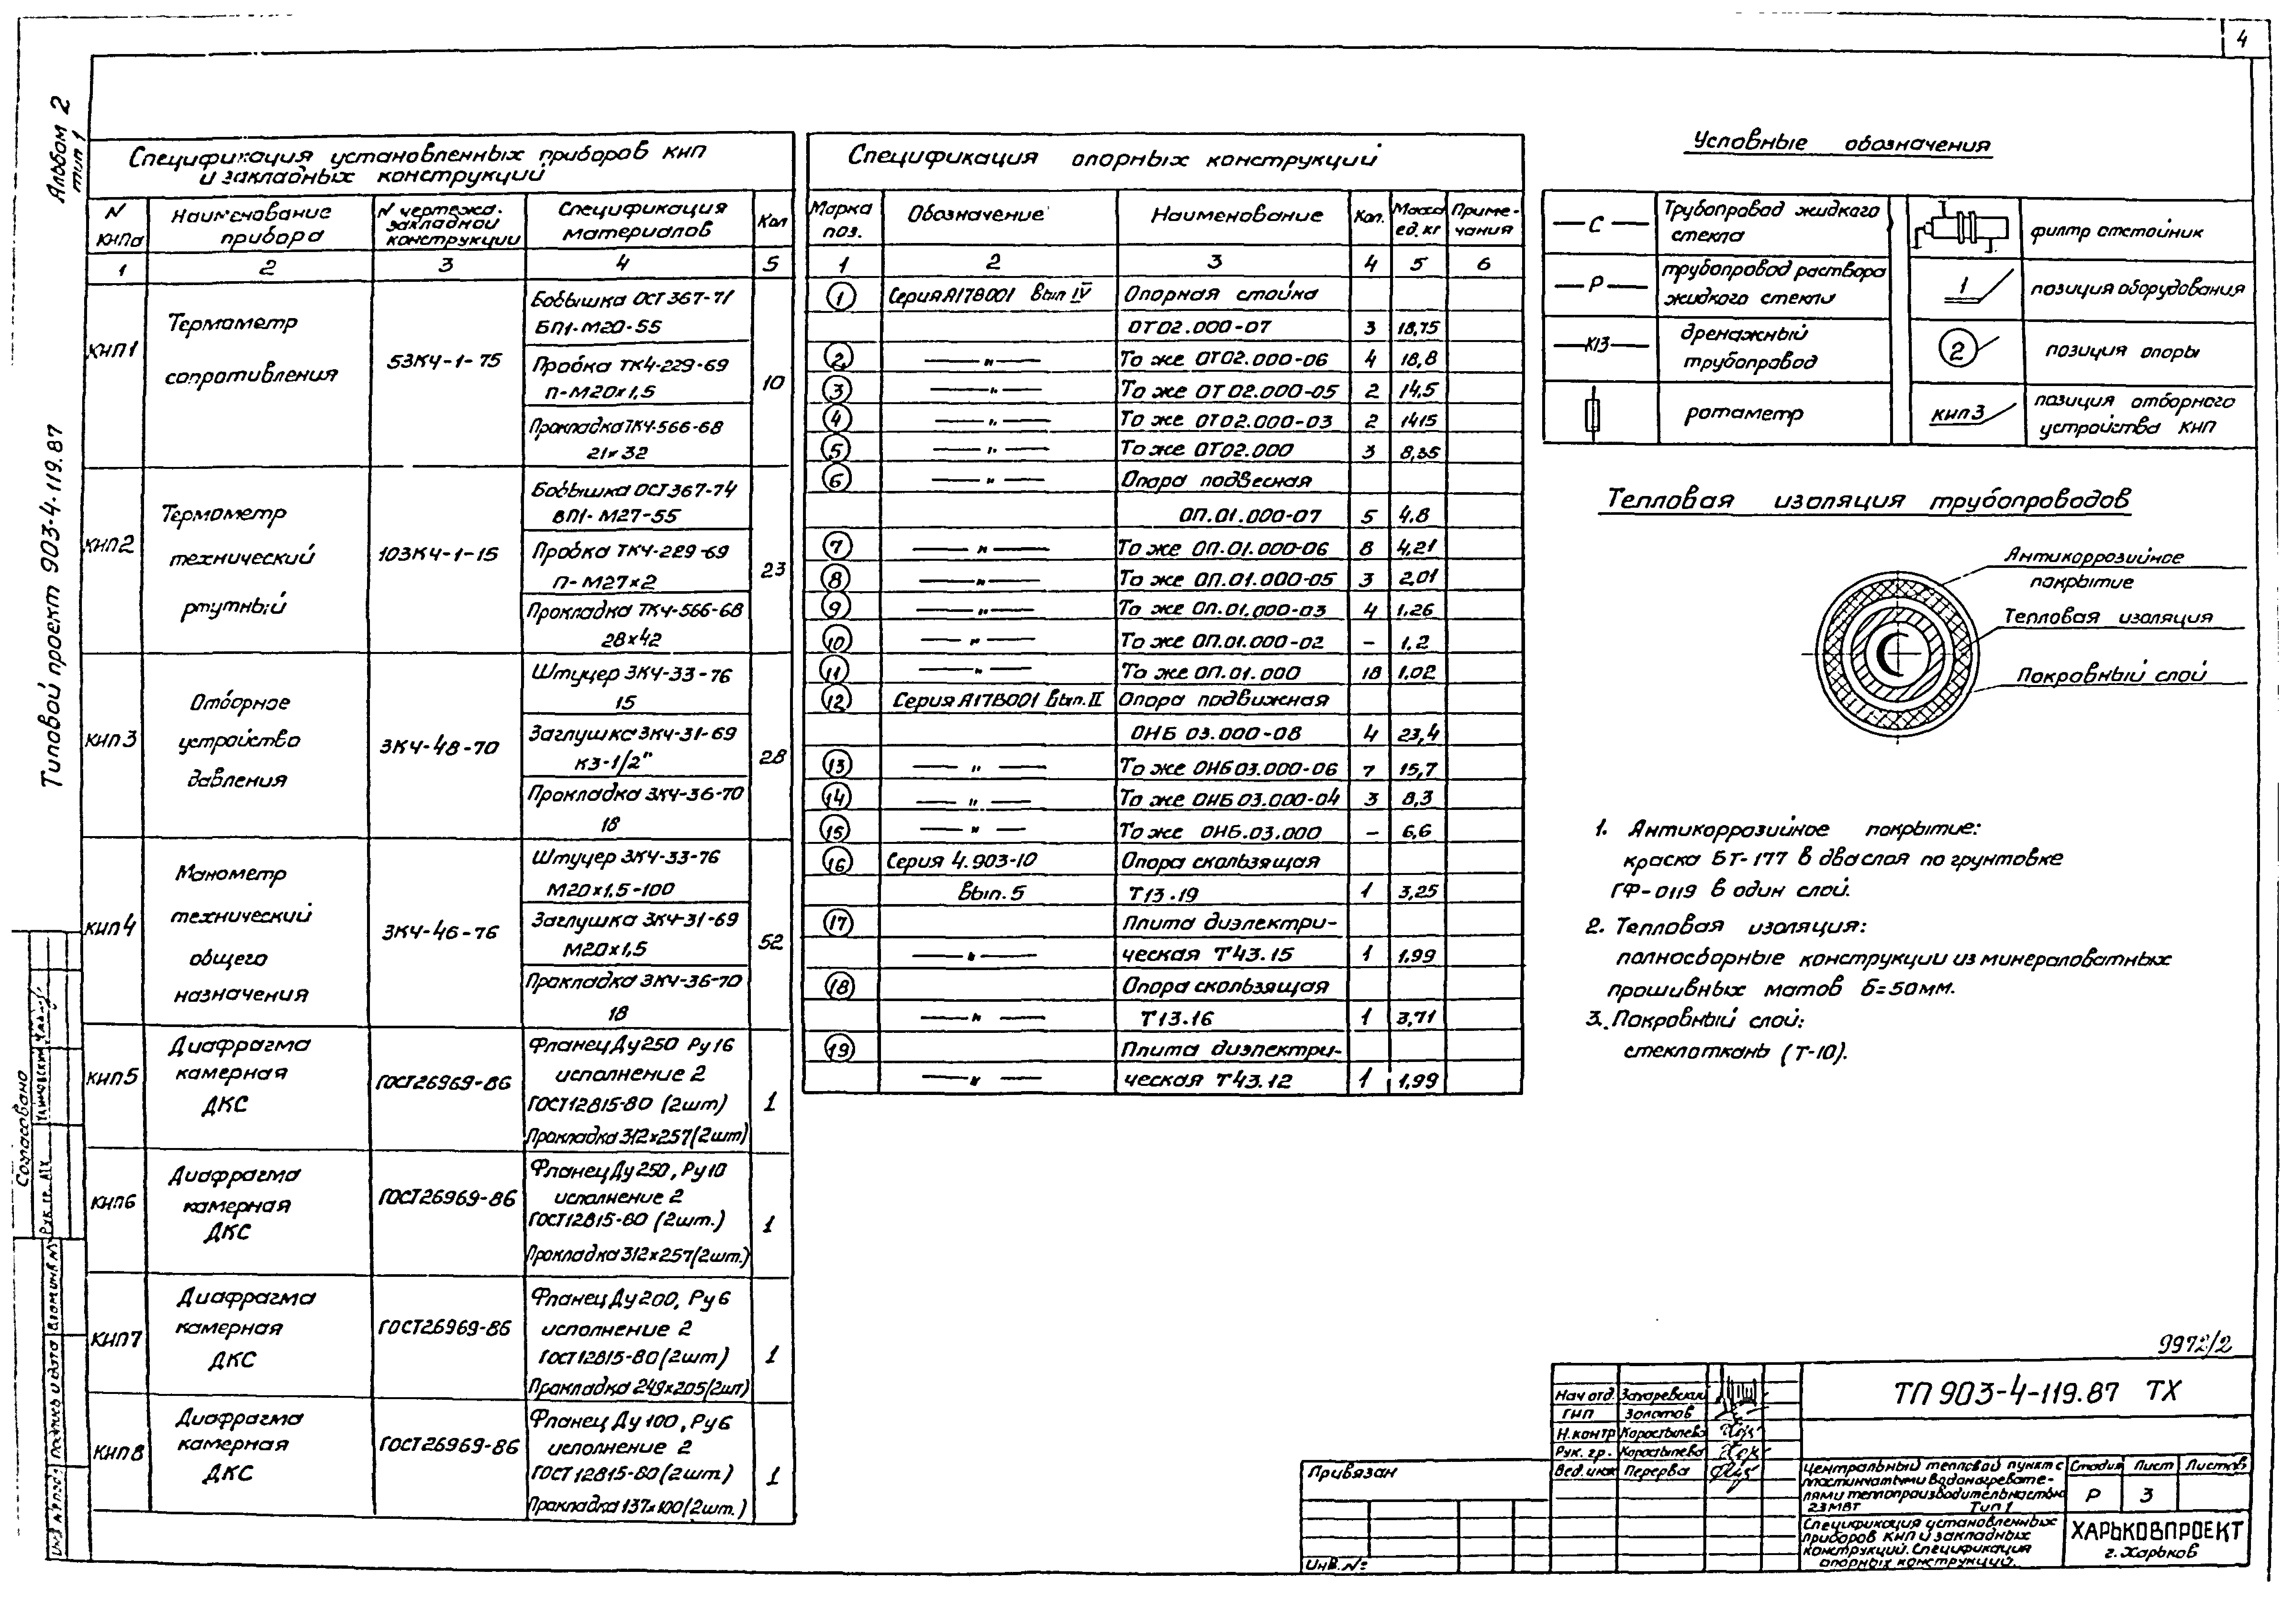 4
Альбом 2
тип 1
Типовой проект 903-4-119.87
Спецификация установленных приборов КИП
и закладных конструкций
N КИПа
Наименование прибора
N чертежа закладной конструкции
Спецификация материалов
Кол
1 2 3 4 5
КИП1
Термометр сопротивления
53К4-1-75
Бобышка ОСТ 367-71
БП1-М20-55
Пробка ТК4-229-69
П-М20х1,5
Прокладка ТК4-566-68
21х32
10
КИП2
Термометр технический ртутный
103К4-1-15
Бобышка ОСТ 367-74
БП1-М27-55
Пробка ТК4-229-69
П-М27х2
Прокладка ТК4-566-68
28х42
23
КИП3
Отборное устройство давления
3К4-48-70
Штуцер 3К4-33-76
15
Заглушка 3К4-31-69
К3-1/2"
Прокладка 3К4-36-70
18
28
КИП4
Манометр технический общего назначения
3К4-46-76
Штуцер 3К4-33-76
М20х1,5-100
Заглушка 3К4-31-69
М20х1,5
Прокладка 3К4-36-70
18
52
КИП5
Диафрагма камерная ДКС
ГОСТ26969-86
Фланец Ду250 Ру16
исполнение 2
ГОСТ12815-80 (2шт)
Прокладка 312х257(2шт)
1
КИП6
Диафрагма камерная ДКС
ГОСТ26969-86
Фланец Ду250, Ру10
исполнение 2
ГОСТ12815-80 (2шт.)
Прокладка 312х257(2шт.)
1
КИП7
Диафрагма камерная ДКС
ГОСТ26969-86
Фланец Ду200, Ру6
исполнение 2
ГОСТ12815-80(2шт)
Прокладка 249х205(2шт)
1
КИП8
Диафрагма камерная ДКС
ГОСТ26969-86
Фланец Ду100, Ру6
исполнение 2
ГОСТ 12815-80(2шт.)
Прокладка 137х100(2шт.)
1
Спецификация опорных конструкций
Марка поз.
Обозначение
Наименование
Кол.
Масса ед. кг
Примечания
1 2 3 4 5 6
1 Серия А17В001 вып IV Опорная стойка
ОТ02.000-07 3 18,75
2 —"— То же ОТ02.000-06 4 18,8
3 —"— То же ОТ02.000-05 2 14,5
4 —"— То же ОТ02.000-03 2 1415
5 —"— То же ОТ02.000 3 8,35
6 —"— Опора подвесная
ОП.01.000-07 5 4.8
7 —"— То же ОП.01.000-06 8 4,21
8 —"— То же ОП.01.000-05 3 2,01
9 —"— То же ОП.01.000-03 4 1.26
10 —"— То же ОП.01.000-02 – 1,2
11 —"— То же ОП.01.000 18 1,02
12 Серия А17В001 вып. II Опора подвижная
ОНБ 03.000-08 4 23,4
13 —"— То же ОНБ03.000-06 7 15,7
14 —"— То же ОНБ 03.000-04 3 8,3
15 —"— То же ОНБ.03.000 – 6,6
16 Серия 4.903-10 Опора скользящая
Вып. 5 Т13.19 1 3,25
17 Плита диэлектри-
—"— ческая Т43.15 1 1.99
18 Опора скользящая
—"— Т13.16 1 3,71
19 Плита диэлектри-
—"— ческая Т43.12 1 1,99
Условные обозначения
—С— Трубопровод жидкого стекла
—Р— трубопровод раствора жидкого стекли
—К13— дренажный трубопровод
ротаметр
филтр отстойник
1 позиция оборудования
2 позиция опоры
КИП3 позиция отборного устройства КИП
Тепловая изоляция трубопроводов
Антикоррозийное
покрытие
Тепловая изоляция
Покровный слой
1. Антикоррозийное покрытие:
краска БТ-177 в два слоя по грунтовке
ГФ-0119 в один слой.
2. Тепловая изоляция:
полносборные конструкции из минераловатных
прошивных матов б=50мм.
3. Покровный слой:
стеклоткань (Т-10).
9972/2
Нач отд. Захаревский
ГИП Золотов
Н.контр Коростылева
Рук. гр. Коростылева
Вед. инж Перерва
Привязан
Инв. №
ТП 903-4-119.87 ТХ
Центральный тепловой пункт с
пластинчатыми водонагревате-
лями теплопроизводительностью
23МВт Тип 1
Стадия Лист Листов
Р 3
Спецификация установленных
приборов КИП и закладных
конструкций. Спецификация
опорных конструкций.
ХАРЬКОВПРОЕКТ
г. Харьков
Согласовано
Рук. гр. АТХ
Взам инв №
Подпись и дата
Инв № подл